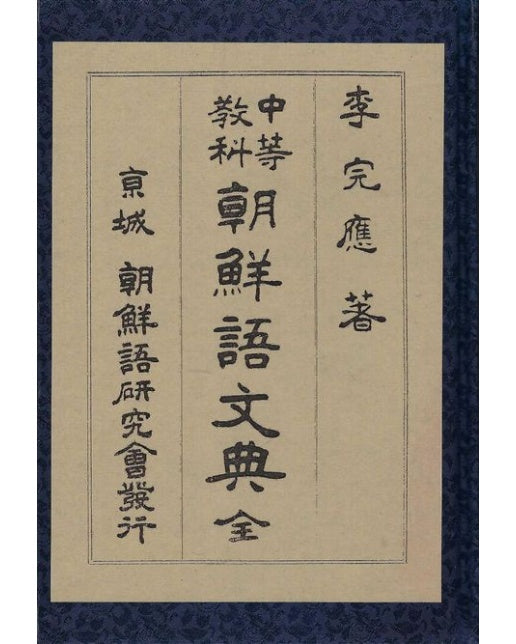 李完應 著
中等教科 朝鮮語文典 全
京城 朝鮮語硏究會發行